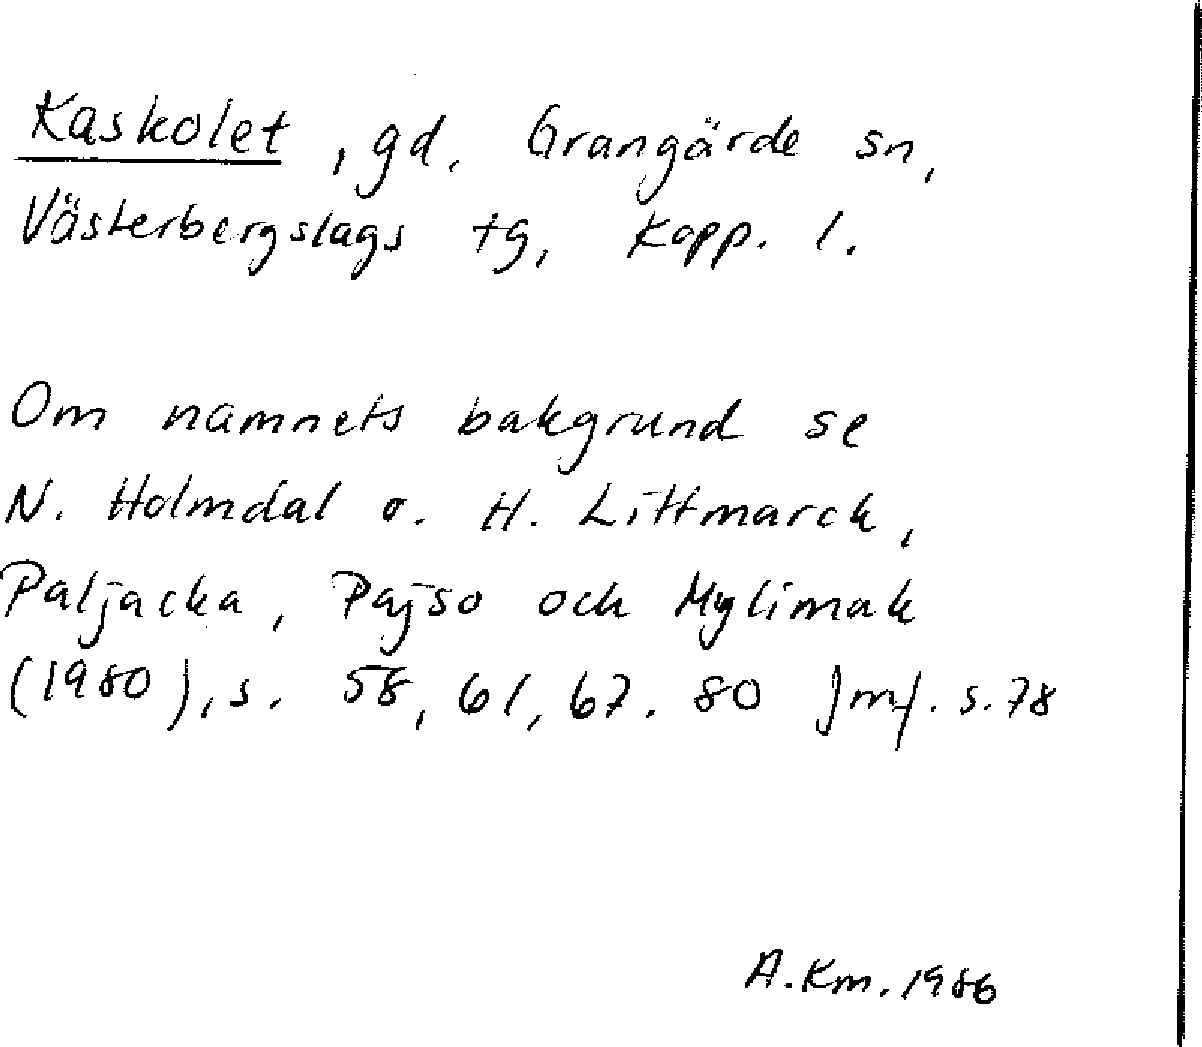 Kaskolet, gd. Grangärde sn,
Västerbergslags tg, Kopp. l.
Om namnets bakgrund se
N. Holmdal o. H. Littmarck,
Paljacka, Pajso och Mylimak
(1980), s. 58, 61, 67. 80 Jmf. s. 78
A.Km. 1986